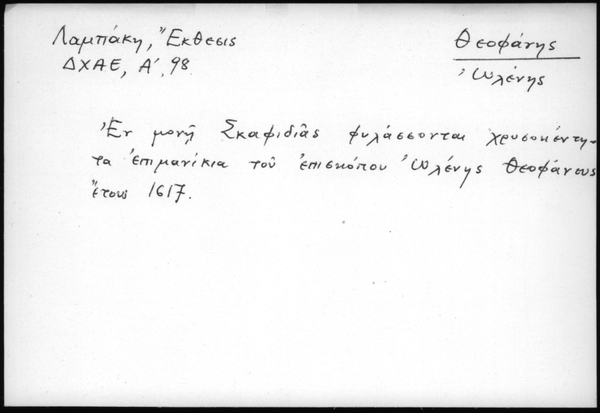 Λαμπάκη, Ἔκθεσις
ΔΧΑΕ, Α', 98.
Θεοφάνης
Ὠλένης
Ἐν μονῇ Σκαφιδιᾶς φυλάσσονται χρυσοκέντη-
τα ἐπιμανίκια τοῦ ἐπισκόπου Ὠλένης Θεοφάνους
ἔτους 1617.